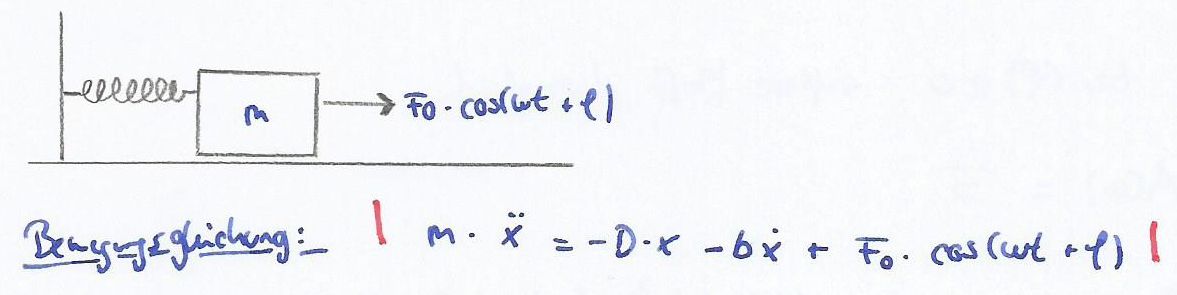 m
F₀ · cos(ωt + φ)
Bewegungsgleichung: | m · ẍ = -D·x - bẋ + F₀ · cos(ωt + φ) |